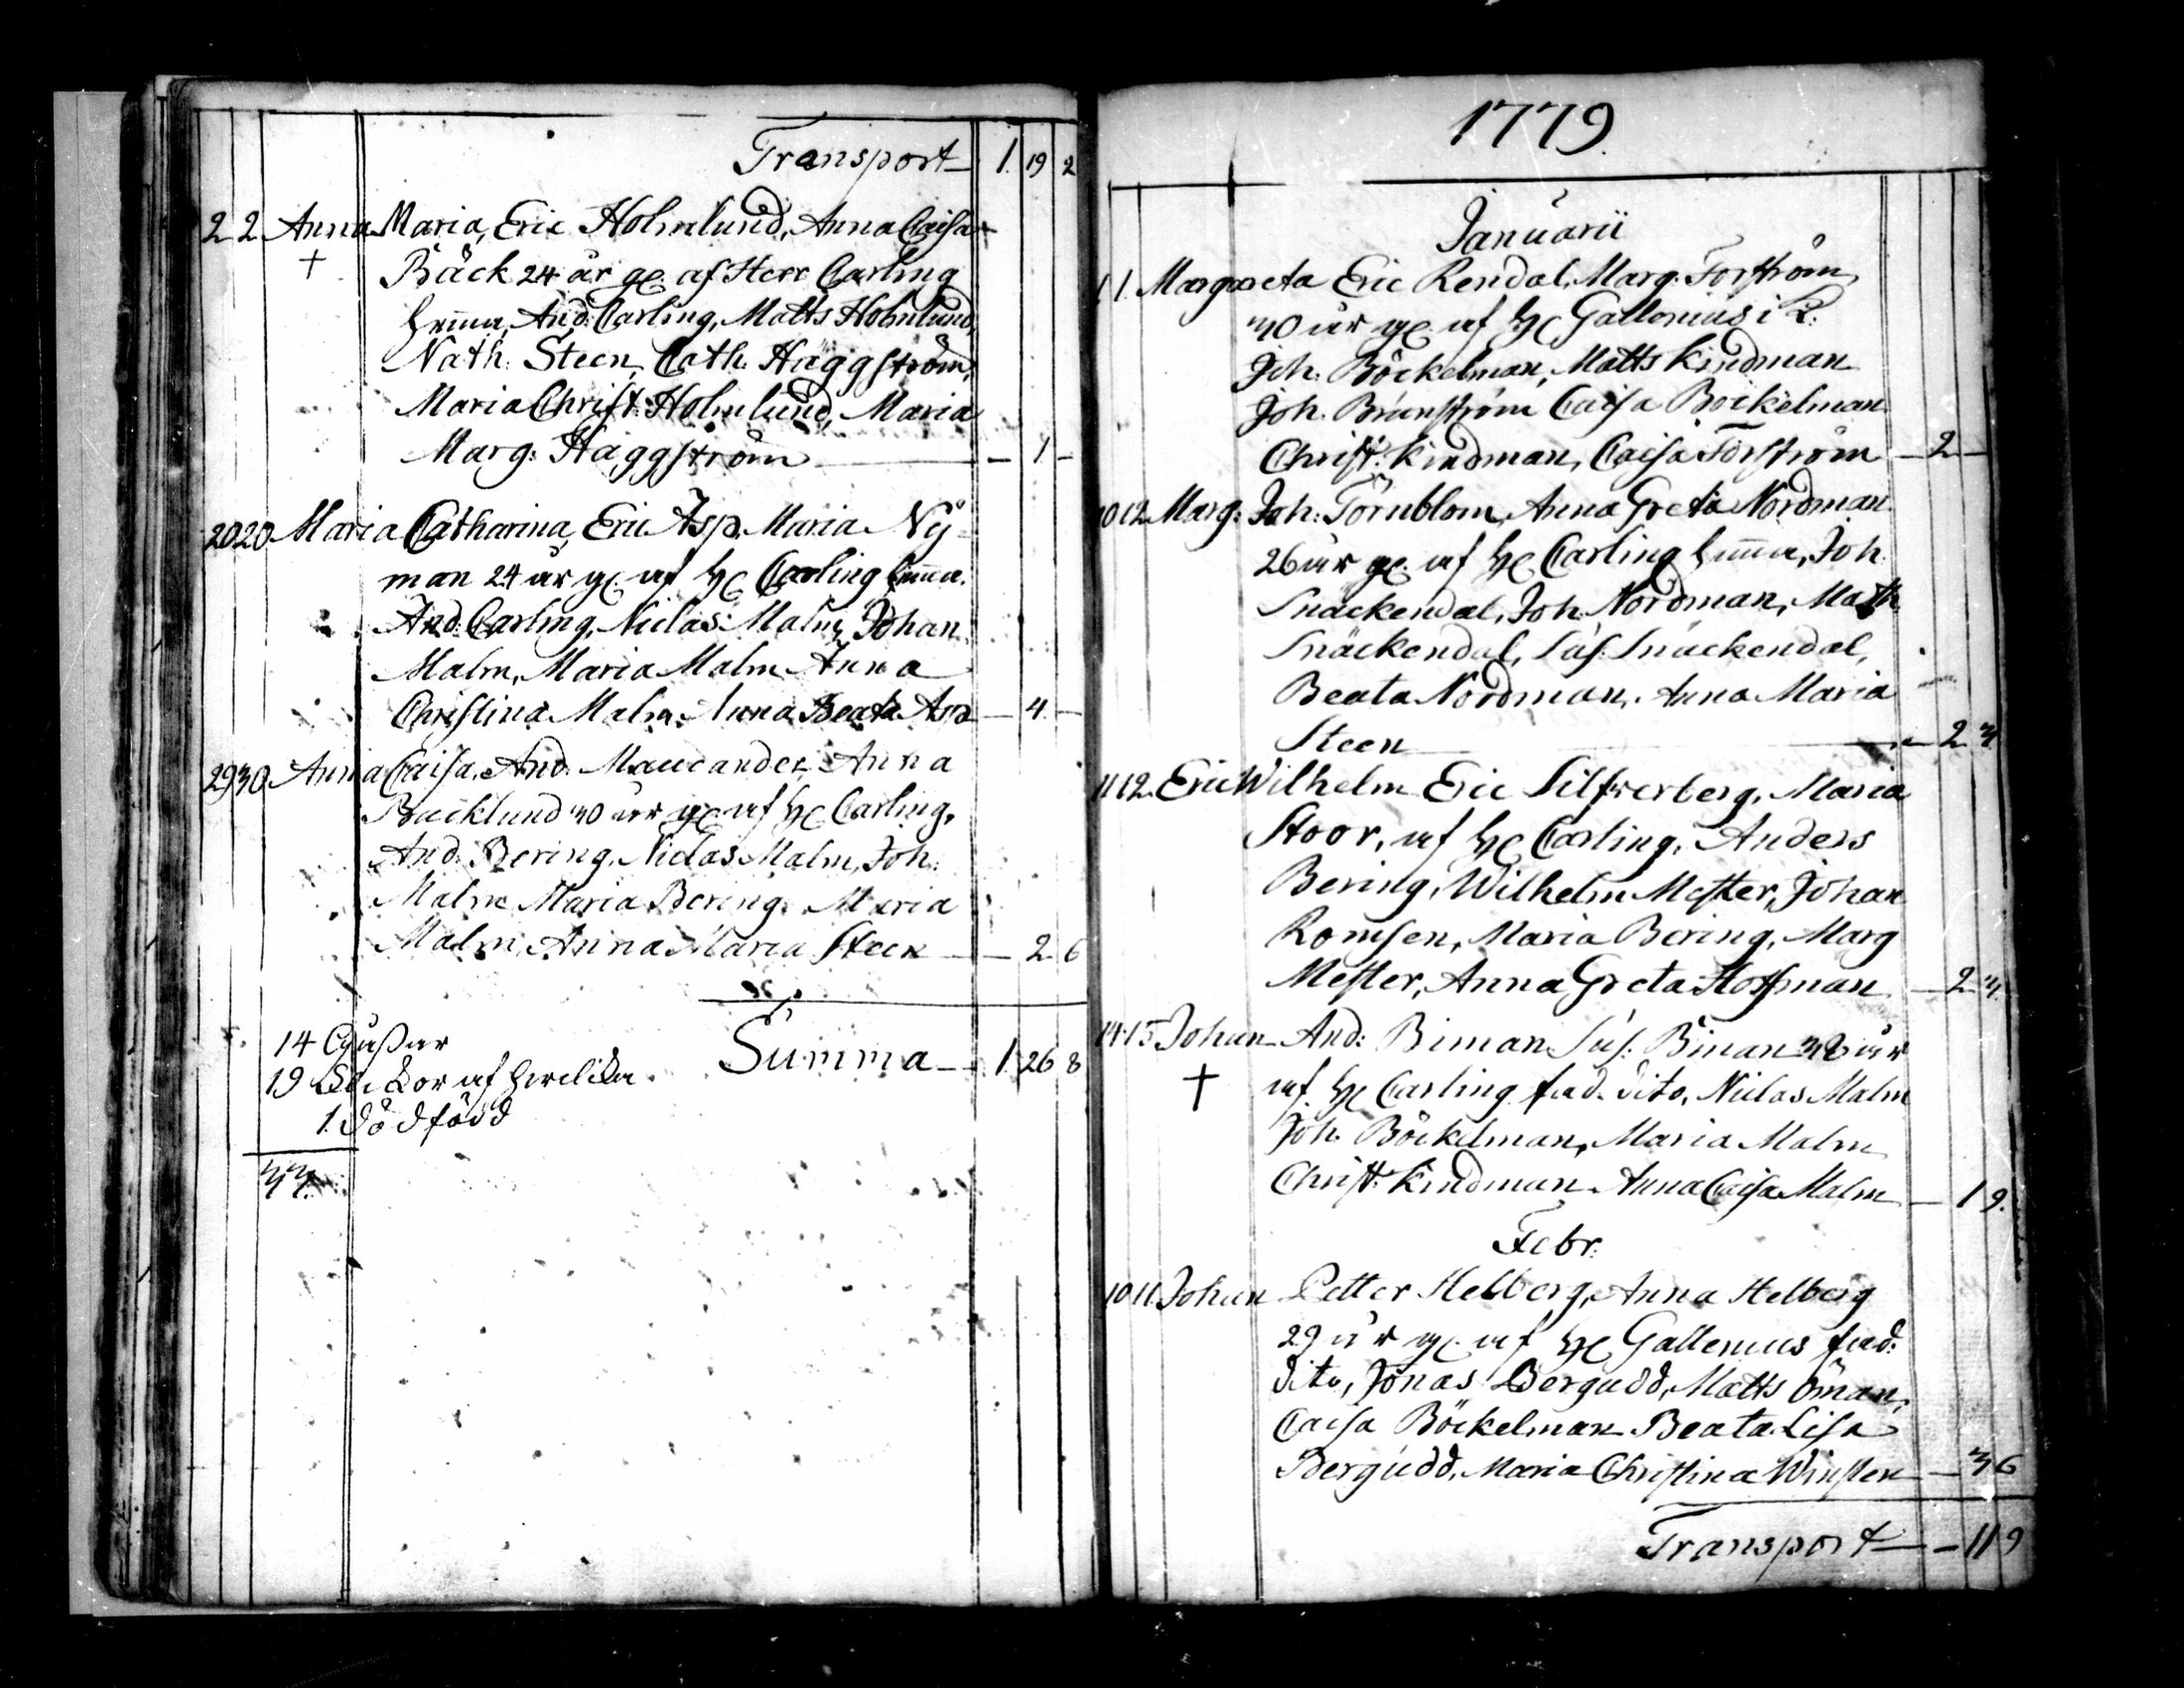 Transport 1. 19 2
2 2 Anna Maria, Eric Holmlund, Anna Caisa
† Bäck 24 år gl. af Herr Carling
hemma, And. Carling, Matts Holmlund,
Nath. Steen, Cath. Häggström,
Maria Christ: Holmlund, Maria
Marg: Häggström — 1 —
20 20 Maria Catharina, Eric Asp, Maria Ny-
man 24 år gl. af H. Carling hemma.
And. Carling, Niclas Malm, Johan
Malm, Maria Malm Anna
Christina Malm, Anna Beata Asp — 4 —
29 30 Anna Caisa, And. Anna
Backlund 30 år gl. af H. Carling,
And. Bering, Niclas Malm, Joh.
Malm Maria Bering, Maria
Malm, Anna Maria Steen — 2 6
14 Gåssar
19 af
1. dödfödd
Summa — 1 26 8
33.
1779.
Januarii
1. 1. Margareta Eric Rendal, Marg. Forström
30 år gl. af H. Gallenius i
Joh. Böckelman, Matts Kindman
Joh. Brunström Caisa Böckelman
Christ. Kindman, Caisa Forström — 2 —
10 12 Marg: Joh: Törnblom, Anna Greta Nordman
26 år gl. af H. Carling hemma, Joh.
Snäckendal, Joh Nordman, Math
Snäckendal, Sus. Snäckendal,
Beata Nordman, Anna Maria
Steen — 2 3
11 12. Eric Wilhelm Eric Silfverberg, Maria
Stoor, af H. Carling, Anders
Bering, Wilhelm Mester, Johan
Romsen, Maria Bering, Marg
Mester, Anna Greta Hoffman — 2 3
14 15 Johan And: Biman Sus: Biman 38 år
† af H. Carling fad. dito, Niclas Malm
Joh. Böckelman, Maria Malm
Christ. Kindman Anna Caisa Malm — 1 9.
Febr.
10 11. Johan Petter Helberg, Anna Helberg
29 år gl. af H. Gallenius fad:
dito, Jonas Bergudd, Matts Öman,
Caisa Böckelman Beata Lisa
Bergudd, Maria Christina Winsten — 3 6
Transport — 11 9